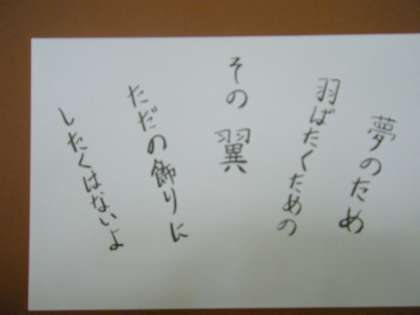 夢のため
羽ばたくための
その翼
ただの飾りに
したくはないよ